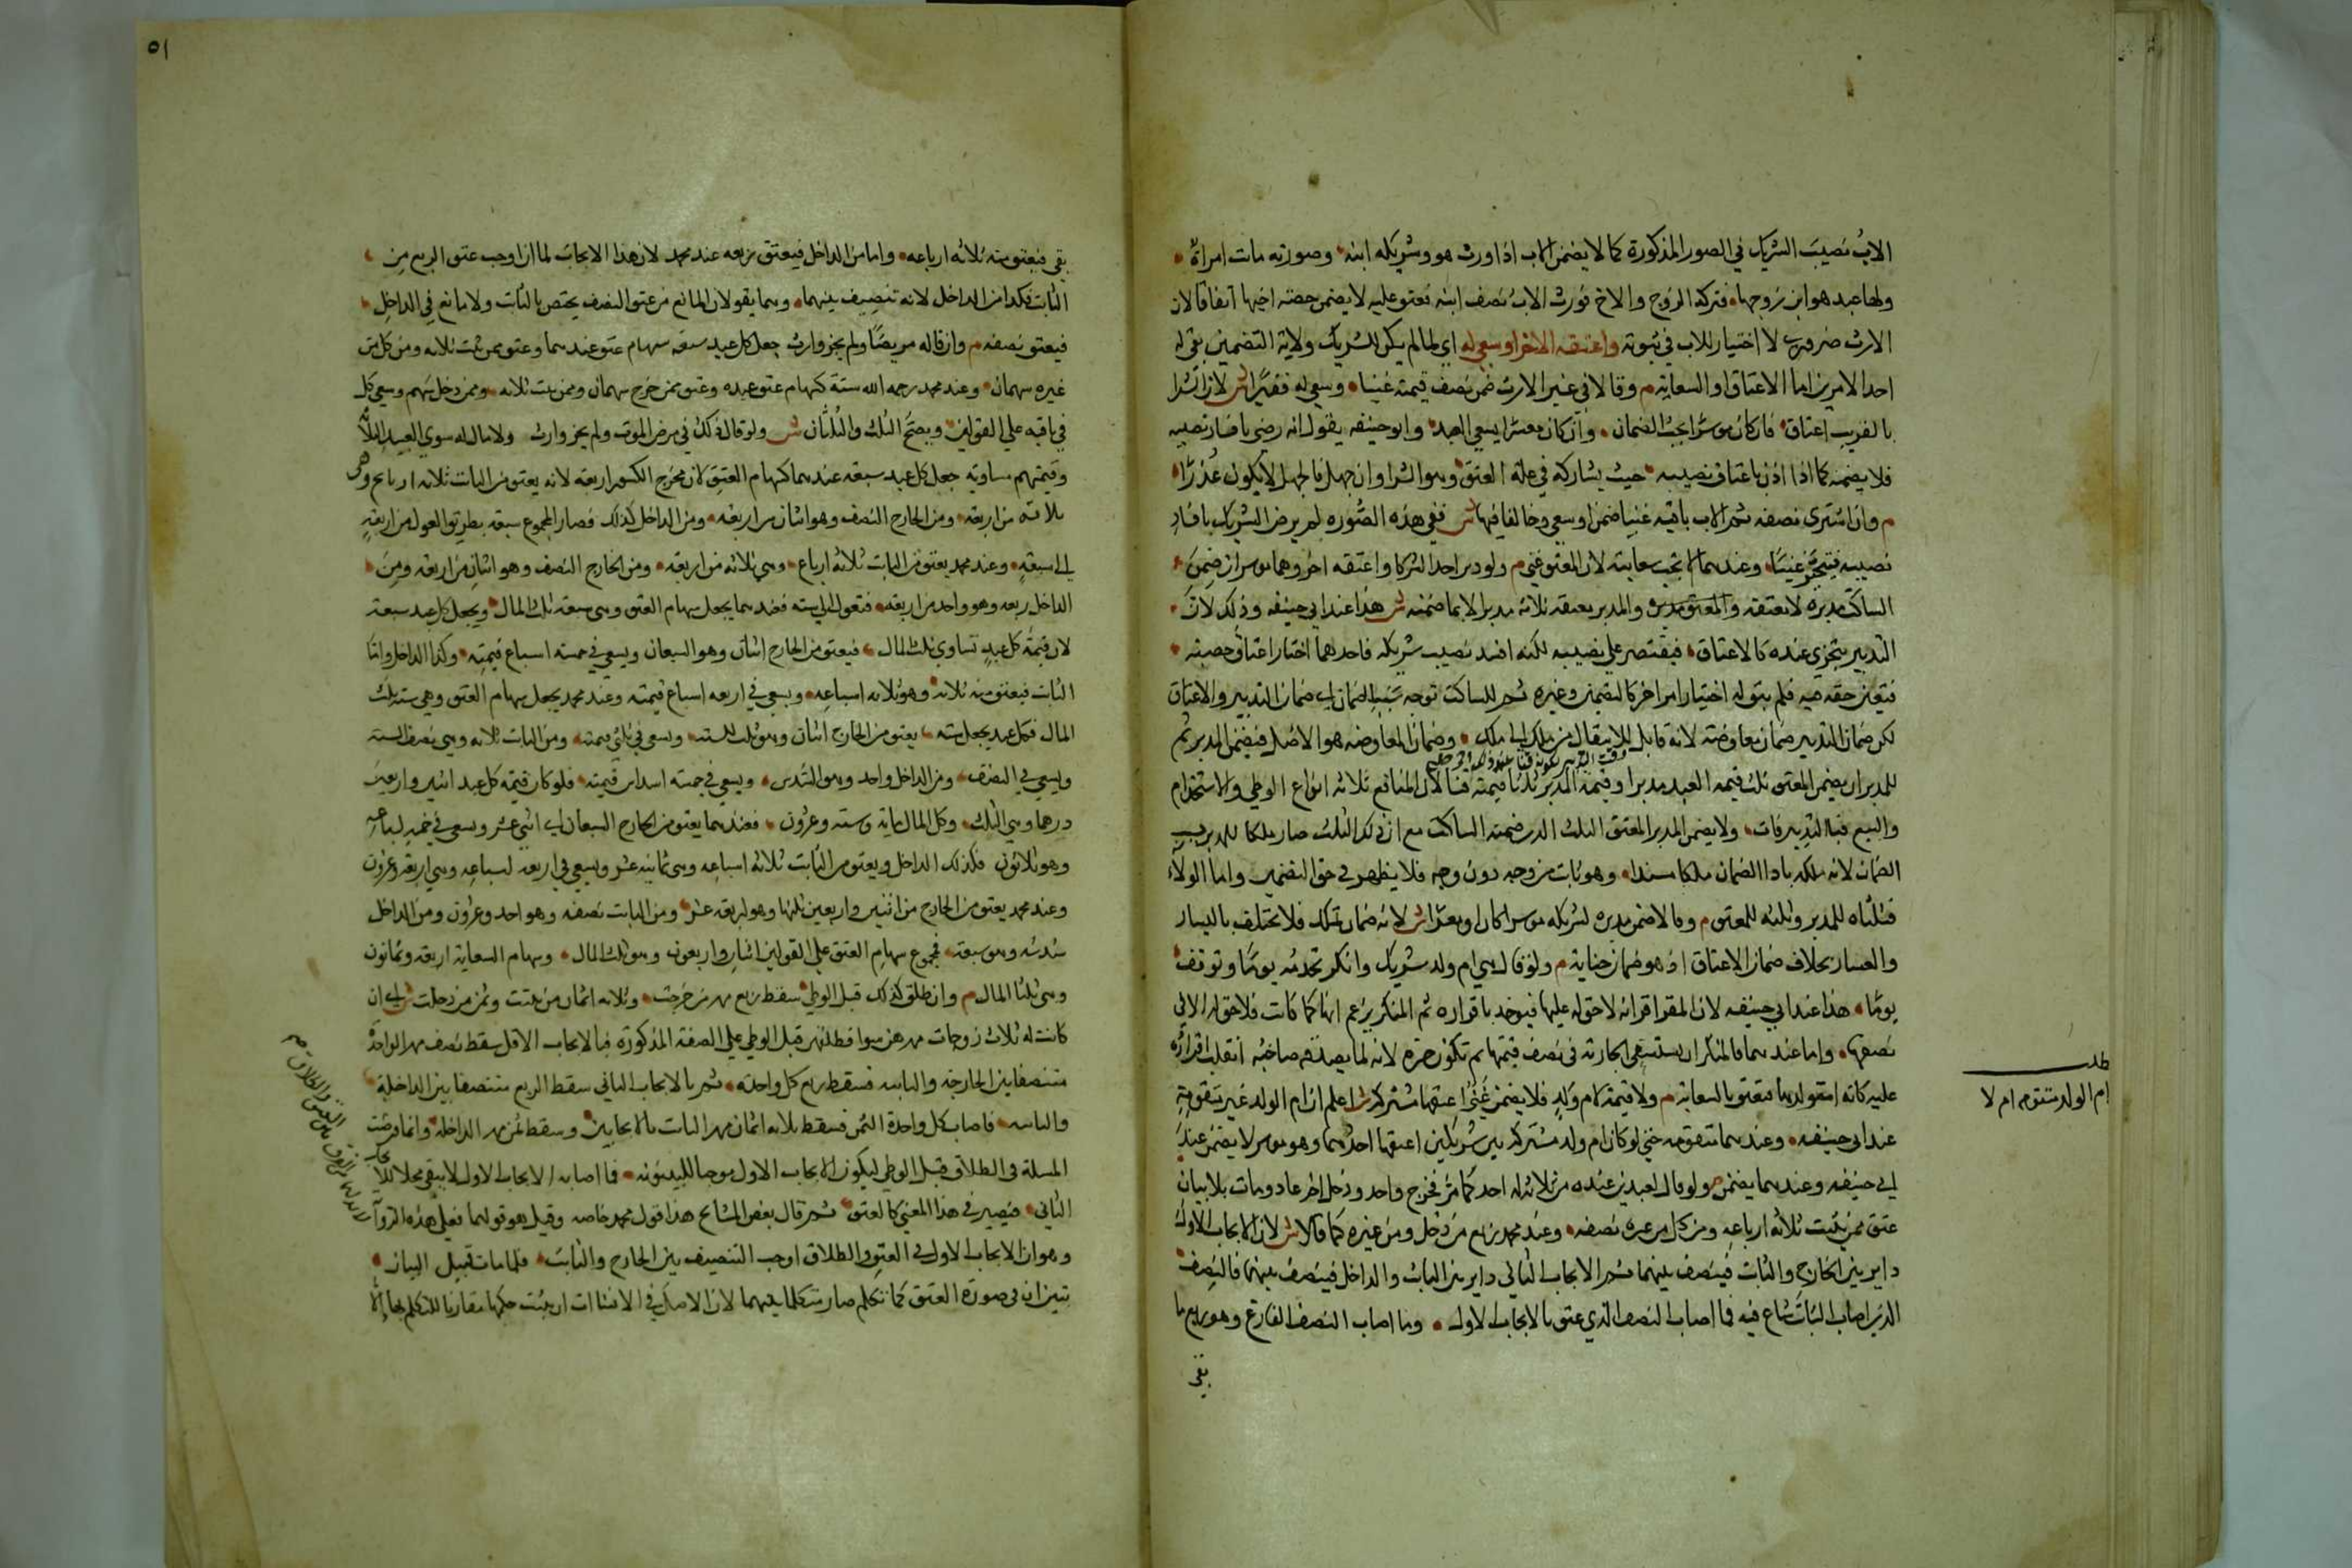 الاب نصيب الشريك في الصور المذكورة كما لا يضمن الاب اذا ورث هو وشريكه ابنه وصورته مات امراة
ولها عبد هو ابن زوجها فترك الزوج والاخ فورث الاب نصف ابنه فعتق عليه لا يضمن حصة اخيها اتفاقا لان
الارث ضروري لا اختيار للاب في ثبوته واعتقه الاخر او سعى له اي لما لم يكن للشريك ولاية التضمين بقي له
احد الامرين اما الاعتاق او السعاية م وقالا في غير الارث ضمن نصف قيمته غنيا وسعى له فقيرا ش لان شرا
القريب اعتاق فان كان موسرا يجب الضمان وان كان معسرا يسعى العبد وابو حنيفه يقول انه رضي بافساد نصيبه
فلا يضمنه كما اذا اذن باعتاق نصيبه حيث يشاركه في علة العتق وهو الشرا وان جهل فالجهل لا يكون عذرا
م وان اشترى نصفه ثم الاب باقيه غنيا ضمن او سعى وخالفا فيها ش ففي هذه الصوره لم يرض الشريك بافساد
نصيبه فيتخير غنيا وعندهما لا يجب سعايته لان المعتق غني م ولو دبر احد الشركا واعتقه اخر وهما موسران ضمن
الساكت مدبره لا معتقه والمدبر معتقه ثلثه مدبرا لا بما ضمنه ش هذا عند ابي حنيفه وذلك لان
التدبير يتجزى عنده كالاعتاق فيقتصر على نصيبه لكنه افسد نصيب شريكه فاحدهما اختار اعتاق حصته
فتعين حقه فيه فلم يبق له اختيار امر اخر كالتضمين وغيره ثم للساكت توجه سببا ضمان اي ضمان التدبير والاعتاق
لكن ضمان التدبير ضمان معاوضة لانه قابل للانتقال من ملك الى ملك وضمان المعاوضه هو الاصل فيضمن المدبر ثم
وقت التدبير لكونه قنا عند ذلك
للمدبر ان يضمن المعتق ثلث قيمه العبد مدبرا وقيمة المدبر ثلثا قيمته قنا لان المنافع ثلاثه انواع الوطي والاستخدام
والبيع فبالتدبير فات ولا يضمن المدبر المعتق الثلث الذي ضمنه الساكت مع ان ذلك الثلث صار ملكا للمدبر بسبب
الضمان لانه ملكه باداا الضمان ملكا مستندا وهو ثابت من وجه دون وجه فلا يظهر في حق التضمين واما الولاء
فثلثاه للمدبر وثلثه للمعتق م وقالا ضمن مدبره لشريكه موسرا كان او معسرا ش لانه ضمان تملك فلا يختلف باليسار
والعسار بخلاف ضمان الاعتاق اذ هو ضمان جناية م ولو قال هي ام ولد شريكي وانكر تخدمه يوما وتوقف
يوما هذا عند ابي حنيفه لان المقر اقر انه لا حق له عليها فيوخذ باقراره ثم المنكر يزعم انها كما كانت فلا حق له الا في
نصفها واما عندهما فالمنكر ان يستسعى الجارية في نصف قيمتها ثم تكون حرة لانه لما يصدقه صاحبه انقلب اقراره
عليه كانه استولدها فتعتق بالسعاية م ولا قيمة لام ولد فلا يضمن غني اعتقها مشتركه ش اعلم ان ام الولد غير متقومة
عند ابي حنيفه وعندهما متقومه حتى لو كان ام ولد مشتركه بين شريكين اعتقها احدهما وهو موسر لا يضمن عند
ابي حنيفه وعندهما يضمن م ولو قال لعبدين عنده من ثلاثه له احدكما حر فخرج واحد ودخل اخر فاعاد ومات بلا بيان
عتق ممن ثبت ثلاثه ارباعه ومن كل من غيره نصفه وعند محمد ربع من دخل ومن غيره كما قالا ش لان الايجاب الاول
داير بين الخارج والثابت فينصف بينهما ثم الايجاب الثاني داير بين الثابت والداخل فينصف بينهما فالنصف
الذي اصاب الثابت شاع فيه فما اصاب النصف الذي عتق بالايجاب الاول وما اصاب النصف الفارغ وهو ربع ما
بقى
طلب
ام الولد متقومه ام لا
٥١
بقى فيعتق منه ثلاثه ارباعه واما من الداخل فيعتق ربعه عند محمد لان هذا الايجاب لما اوجب عتق الربع من
الثابت فكذا من الداخل لانه تنصيف بينهما وهما يقولان المانع من عتق النصف يختص بالثابت ولا مانع في الداخل
فيعتق نصفه م وان قاله مريضا ولم يجز وارث جعل كل عبد سبعة سهام عتق عندهما وعتق ممن ثبت ثلاثه ومن كل من
غيره سهمان وعند محمد رحمه الله ستة كسهام عتق عبده وعتق ممن خرج سهمان وممن ثبت ثلاثه وممن دخل سهم وسعى كل
في باقيه على القولين ويصح الثلث والثلثان ش ولو قال ذلك في مرض الموت ولم يجز وارث ولا مال له سوى العبيد الثلاثة
وقيمتهم متساوية جعل كل عبد سبعه عندهما كسهام العتق لان مخرج الكسور اربعه لانه يعتق من الثابت ثلاثه ارباع وهي
ثلاثه من اربعه ومن الخارج النصف وهو اثنان من اربعه ومن الداخل كذلك فصار المجموع سبعه بطريق العول من اربعة
الى سبعة وعند محمد يعتق من الثابت ثلاثه ارباع وهي ثلاثه من اربعه ومن الخارج النصف وهو اثنان من اربعه ومن
الداخل ربعه وهو واحد من اربعه فتعول الى سته فعندهما يجعل سهام العتق وهي سبعه ثلث المال ويجعل كل عبد سبعة
لان قيمة كل عبد تساوي ثلث المال فيعتق من الخارج اثنان وهو السبعان ويسعى في خمسه اسباع قيمته وكذا الداخل واما
الثابت فيعتق منه ثلاثه وهو ثلاثه اسباعه ويسعى في اربعه اسباع قيمته وعند محمد يجعل سهام العتق وهي سته ثلث
المال فكل عبد يجعل سته يعتق من الخارج اثنان وهو ثلث السته ويسعى في ثلثي قيمته ومن الثابت ثلاثه وهي نصف السته
ويسعى في النصف ومن الداخل واحد وهو السدس ويسعى في خمسه اسداس قيمته فلو كان قيمه كل عبد اثنين واربعين
درهما وهي الثلث وكل المال ماية وسته وعشرون فعندهما يعتق من الخارج السبعان اي اثني عشر ويسعى في خمسة اسباعه
وهو ثلاثون فكذلك الداخل ويعتق من الثابت ثلاثه اسباعه وهي ثمانيه عشر ويسعى في اربعه اسباعه وهي اربعة وعشرون
وعند محمد يعتق من الخارج من اثنين واربعين ثلثها وهو اربعة عشر ومن الثابت نصفه وهو احد وعشرون ومن الداخل
سدسه وهو سبعة فمجموع سهام العتق على القولين اثنان واربعون وهو ثلث المال وسهام السعاية اربعه وثمانون
وهي ثلثا المال م وان طلق كذلك قبل الوطي سقط ربع مهر من خرجت وثلاثه اثمان من ثبتت وثمن من دخلت ش اي ان
كانت له ثلاث زوجات مهرهن سوا فطلقهن قبل الوطي على الصفة المذكورة فبالايجاب الاول سقط نصف مهر الواحدة
متنصفا بين الخارجة والثابته فسقط ربع كل واحدة ثم بالايجاب الثاني سقط الربع متنصفا بين الداخلة
والثابته فاصاب كل واحدة الثمن فسقط ثلاثه اثمان مهر الثابت بالايجابين وسقط ثمن مهر الداخله وانما فرضت
المسلة في الطلاق قبل الوطي ليكون الايجاب الاول موجبا للبينونه فما اصابه الايجاب الاول لا يبقى محلا للايجاب
الثاني فيصير في هذا المعنى كالعتق ثم قال بعض المشايخ هذا قول محمد خاصه وقيل هو قولهما فعلى هذه الروآ
وهو ان الايجاب الاول في العتق والطلاق اوجب التنصيف بين الخارج والثابت فلما مات قبيل البيان
تبين ان في صورة العتق كما تكلم صار متكلما بينهما لان الاصل في الانشاات ان يثبت حكمها مقارنا للتكلم بها الا